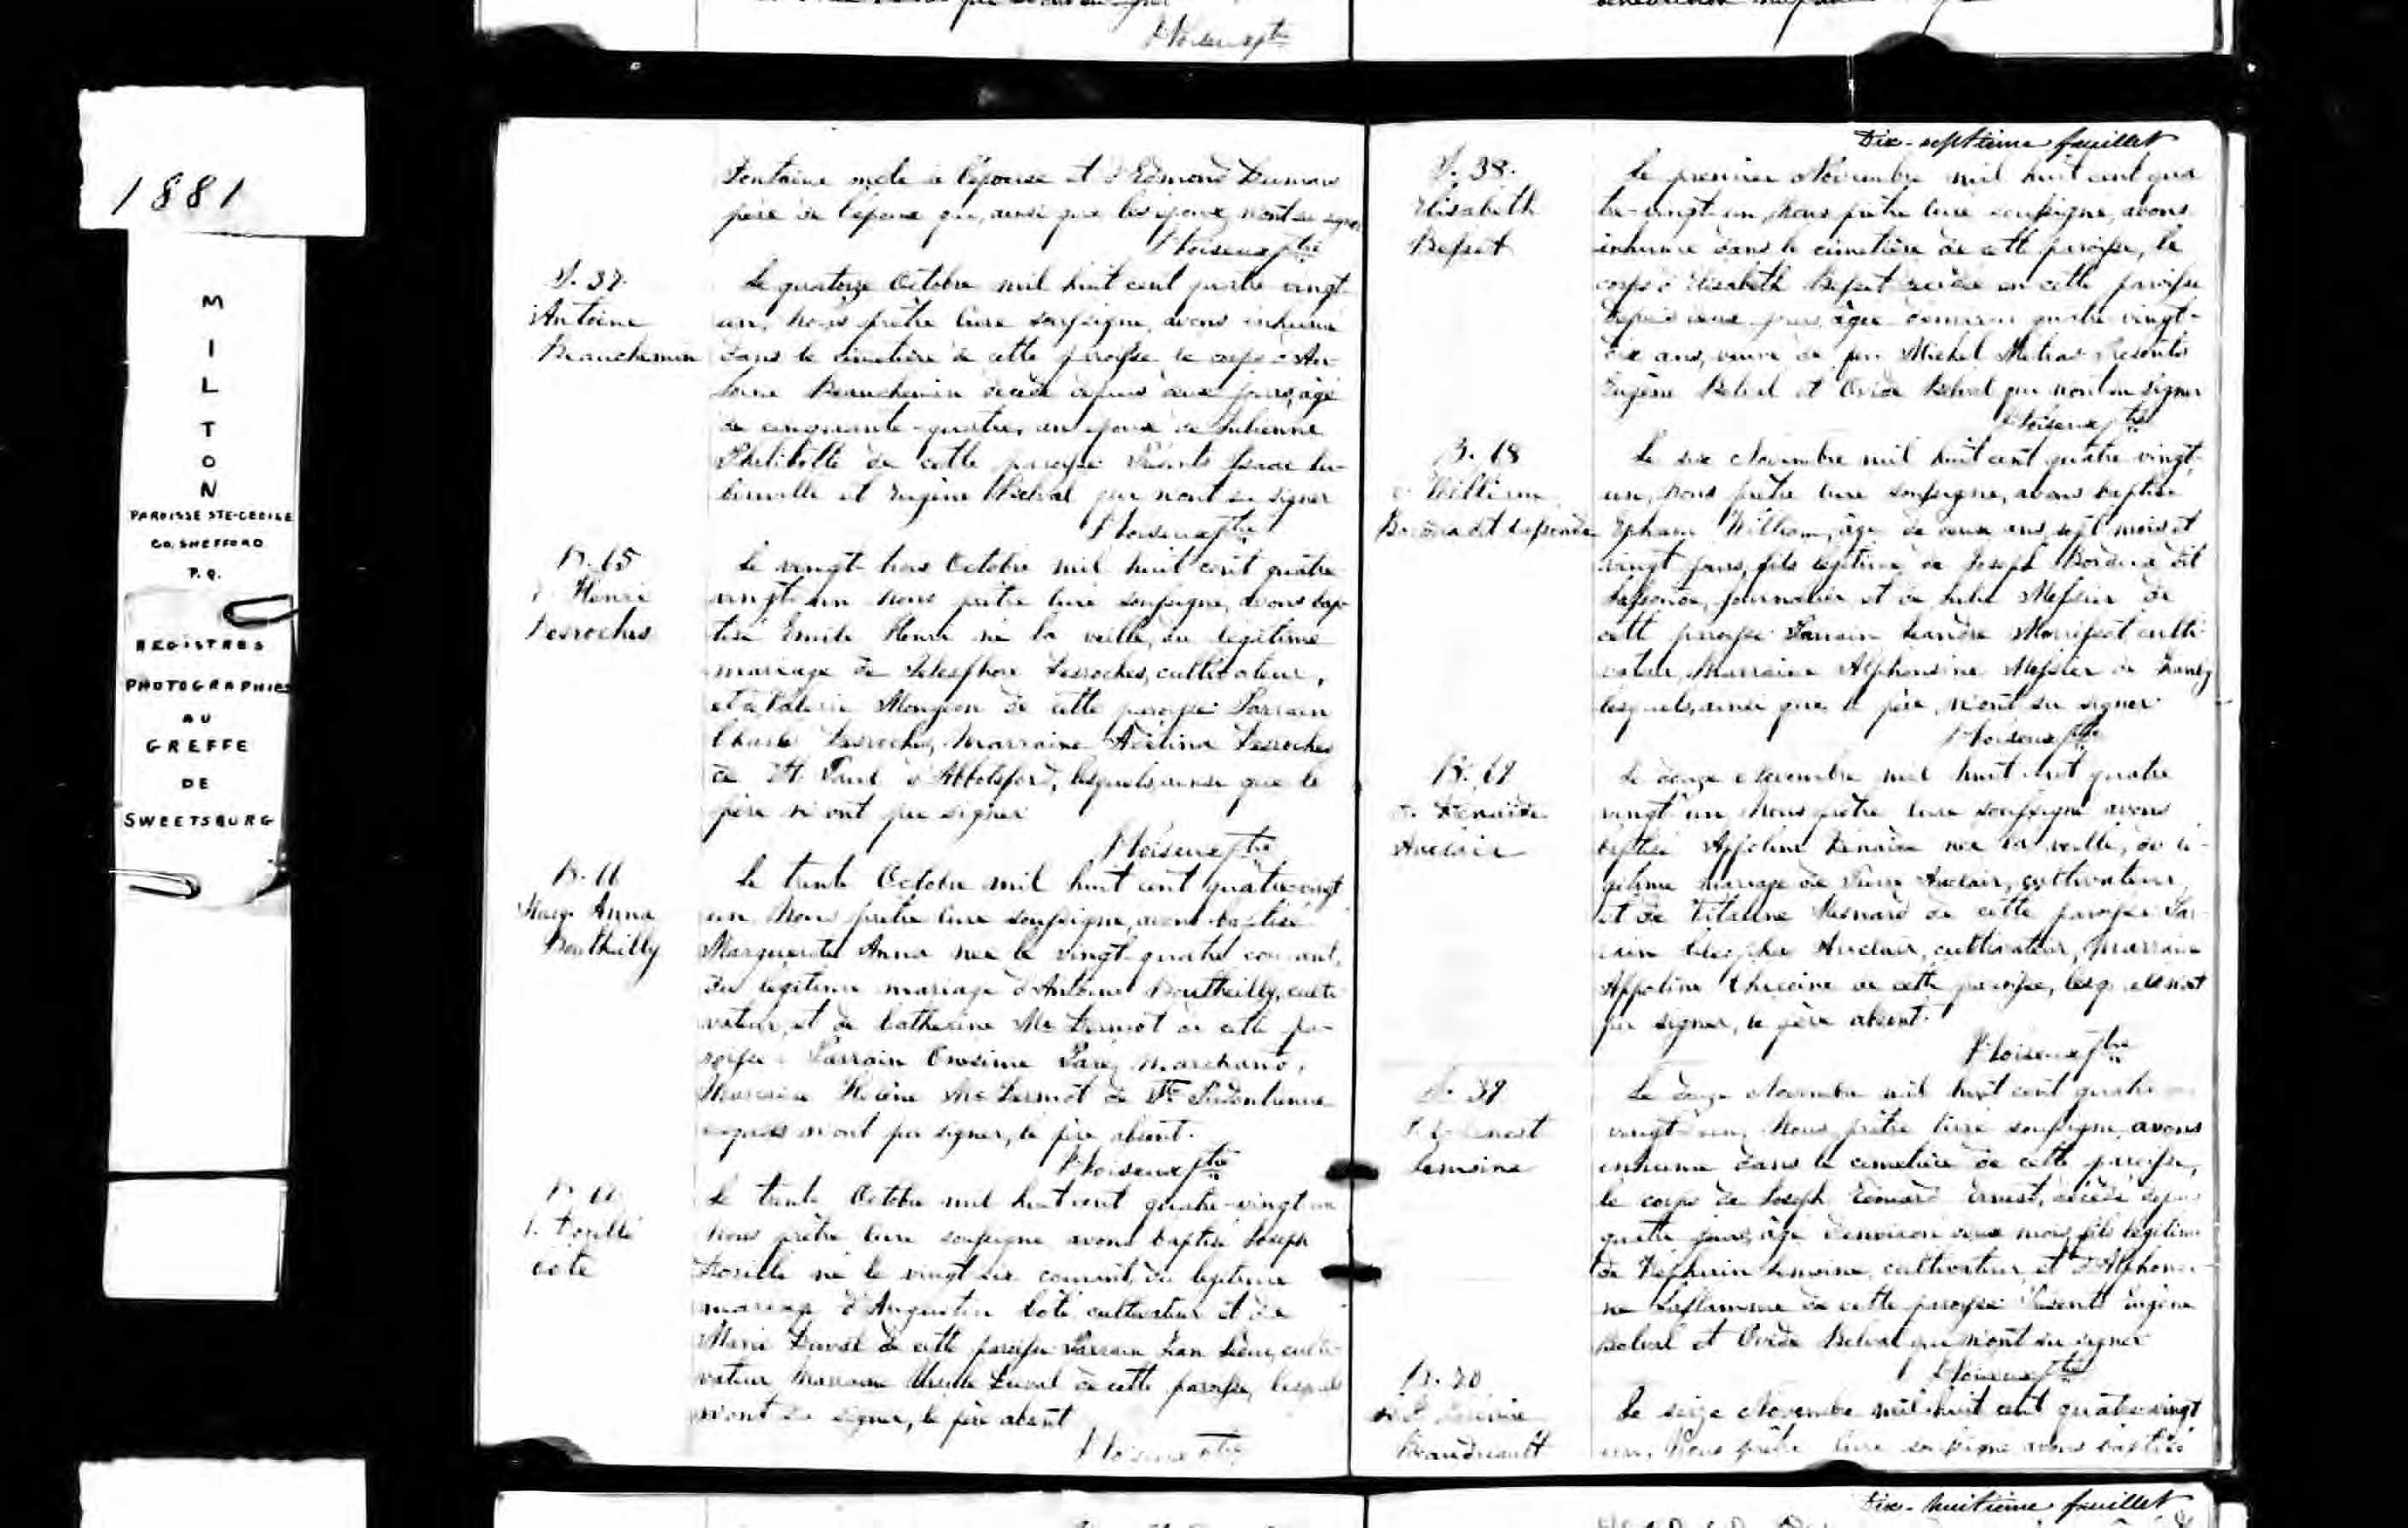 1881
M
I
L
T
O
N
PAROISSE STE-CECILE
CO. SHEFFORD
P.Q.
REGISTRES
PHOTOGRAPHIES
AU
GREFFE
DE
SWEETSBURG
Fontaine à l'épouse et d'Edmond
père de l'époux qui, ainsi que les époux, n'ont su signer
S. 37.
Antoine
Beauchemin
Le quatorze Octobre mil huit cent quatre vingt
un, Nous prêtre Curé soussigné, avons inhumé
dans le cimetière de cette paroisse, le corps d'An-
toine Beauchemin décédé depuis deux jours, âgé
de cinquante-quatre, an époux de Julienne
de cette paroisse Présents Isaac
et Eugène Belval qui n'ont su signer
B. 65
Henri
Desroches
Le vingt-trois Octobre mil huit cent quatre
vingt-un Nous prêtre Curé soussigné, avons bap-
tisé Emile Henri né la veille, du légitime
mariage de Telesphore Desroches, cultivateur,
et de Valérie Mongeon de cette paroisse Parrain
Charles Desroches, Marraine Desroches
de St. Paul d'Abbotsford, lesquels, ainsi que le
père n'ont pu signer
B. 66
Marg. Anna
Boutheilly
Le trente Octobre mil huit cent quatre vingt
un Nous prêtre Curé soussigné, avons baptisé
Marguerite Anna née le vingt-quatre courant,
du légitime mariage d'Antoine Boutheilly, culti-
vateur, et de Catherine McDermot de cette pa-
roisse. Parrain Onésime Paré, marchand,
Marraine Hélène McDermot de Ste Pudentienne
lesquels n'ont pu signer, le père absent.
J. Dosille
Coté
Le trente Octobre mil huit cent quatre-vingt un
Nous prêtre Curé soussigné avons baptisé Joseph
Dosille né le vingt six courant, du légitime
mariage d'Augustin Coté cultivateur et de
Marie Duval de cette paroisse Parrain Jean culti-
vateur, Marraine Duval de cette paroisse, lesquels
n'ont su signer, le père absent
Dix-septième feuillet
S. 38.
Elisabeth
Besset
Le premier Novembre mil huit cent qua
tre-vingt-un, Nous prêtre Curé soussigné, avons
inhumé dans le cimetière de cette paroisse, le
corps d'Elisabeth Besset décédée en cette paroisse
depuis deux jours, âgée d'environ quatre-vingt-
dix ans, veuve de feu Michel Métras Présents
Eugène Belval et Ovide Belval qui n'ont su signer
B. 68
William
Bordua dit Lafonde
Le six Novembre mil huit cent quatre vingt
un, Nous prêtre Curé soussigné, avons baptisé
William, âgé de deux ans, sept mois et
vingt jours, fils légitime de Joseph Bordua dit
journalier et de Julie Messier de
cette paroisse Parrain Leandre Morrisset culti-
vateur, Marraine Alphonsine Messier de Granby
lesquels, ainsi que le père, n'ont su signer
B. 69
Auclair
Le douze Novembre mil huit cent quatre
vingt un Nous prêtre Curé soussigné avons
baptisé Appoline née la veille, du lé-
gitime mariage de Pierre Auclair, cultivateur
et de Vitaline Mesnard de cette paroisse Par-
rain Auclair, cultivateur, Marraine
Appoline de cette paroisse, lesquels n'ont
pu signer, le père absent.
S. 39
Ernest
Lemoine
Le Novembre mil huit cent quatre
vingt-un, Nous prêtre Curé soussigné, avons
inhumé dans le cimetière de cette paroisse,
le corps de Joseph Edouard Ernest, décédé depuis
quatre jours, âgé d'environ deux mois, fils légitime
de Zéphirin Lemoine, cultivateur, et d'Alphonsi-
ne Laflamme de cette paroisse Présents Eugène
Belval et Ovide Belval qui n'ont su signer
B. 70
Le seize Novembre mil huit cent quatre vingt
un. Nous prêtre Curé soussigné avons baptisé
Dix-huitième feuillet